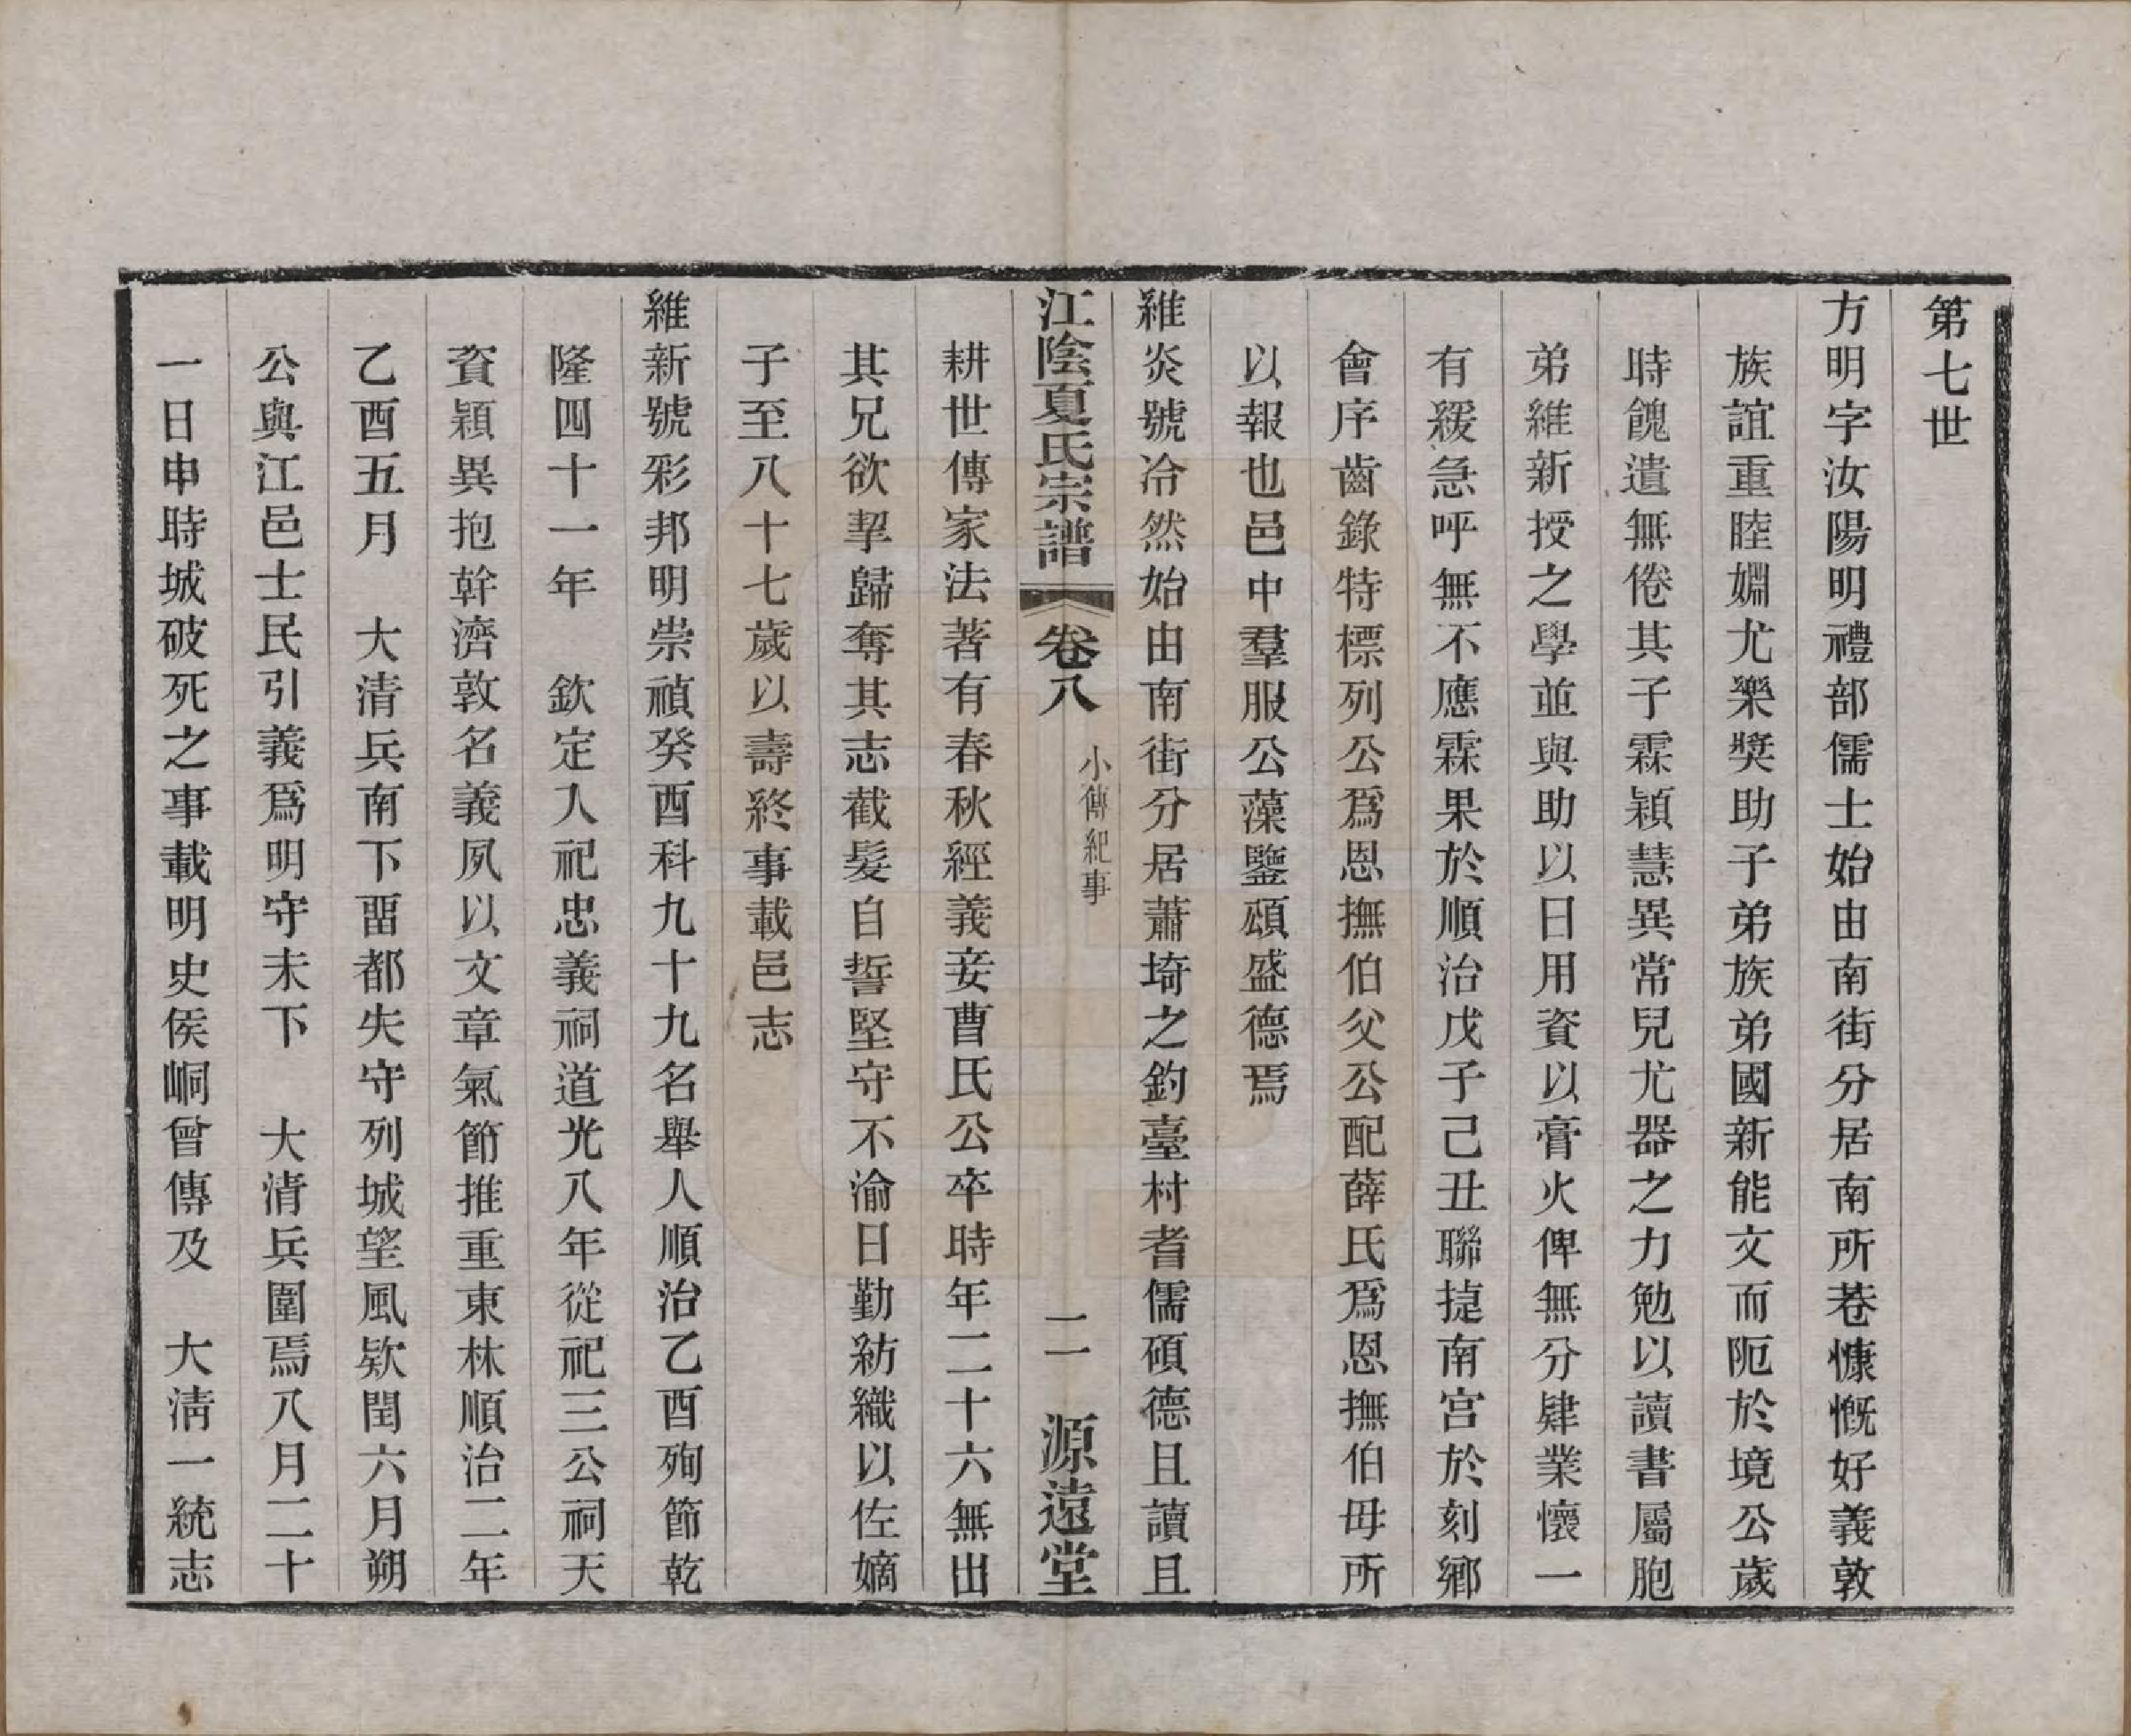 第七世
方明字汝陽明禮部儒士始由南街分居南所巷慷慨好義敦
族誼重睦婣尤樂獎助子弟族弟國新能文而阨於境公歲
時餽遺無倦其子霖穎慧異常兒尤器之力勉以讀書屬胞
弟維新授之學並與助以日用資以膏火俾無分肄業懷一
有緩急呼無不應霖果於順治戊子己丑聯捷南宮於刻鄉
會序齒錄特標列公爲恩撫伯父公配薛氏爲恩撫伯毋所
以報也邑中羣服公藻鑒頌盛德焉
維炎號冷然始由南街分居蕭埼之釣臺村耆儒碩德且讀且
江陰夏氏宗譜 卷八 小傳紀事 二 源遠堂
耕世傳家法著有春秋經義妾曹氏公卒時年二十六無出
其兄欲挈歸奪其志截髮自誓堅守不渝日勤紡織以佐嫡
子至八十七歲以壽終事載邑志
維新號彩邦明崇禎癸酉科九十九名舉人順治乙酉殉節乾
隆四十一年 欽定入祀忠義祠道光八年從祀三公祠天
資穎異抱幹濟敦名義夙以文章氣節推重東林順治二年
乙酉五月 大清兵南下畱都失守列城望風欵閏六月朔
公與江邑士民引義爲明守未下 大清兵圍焉八月二十
一日申時城破死之事載明史侯峒曾傳及 大淸一統志